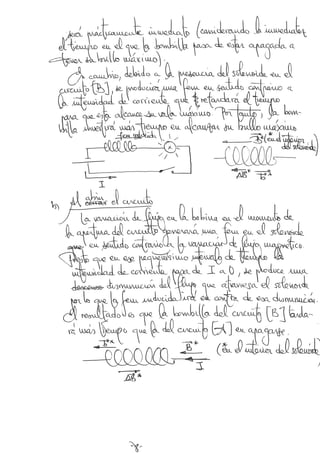 será prácticamente inmediato (considerando la inmediatez
el tiempo en el que la bombilla pasa de estar apagada a
tener su brillo máximo).
En cambio, debido a la presencia del solenoide en el
circuito [B], se producirá una fem en sentido contrario a
la intensidad de corriente, que retardará el tiempo
para que ésta alcance su valor máximo. Por tanto, la bom-
billa invertirá más tiempo en alcanzar su brillo máximo
fem inducida
B* (en el interior
del solenoide)
I
ΔB* B*
b) Al abrir el circuito
La variación de flujo en la bobina en el momento de
la apertura del circuito generará una fem en el solenoide
en sentido contrario a la variación de flujo magnético.
Puesto que en ese pequeñísimo intervalo de tiempo la
intensidad de corriente pasa de I a 0, se produce una
disminución del flujo que atraviesa el solenoide
por lo que la fem inducida irá en contra de esa disminución.
El resultado es que la bombilla del circuito [B] tarda-
rá más tiempo que la del circuito [A] en apagarse.
B* (* en el interior del solenoide)
I
ΔB*